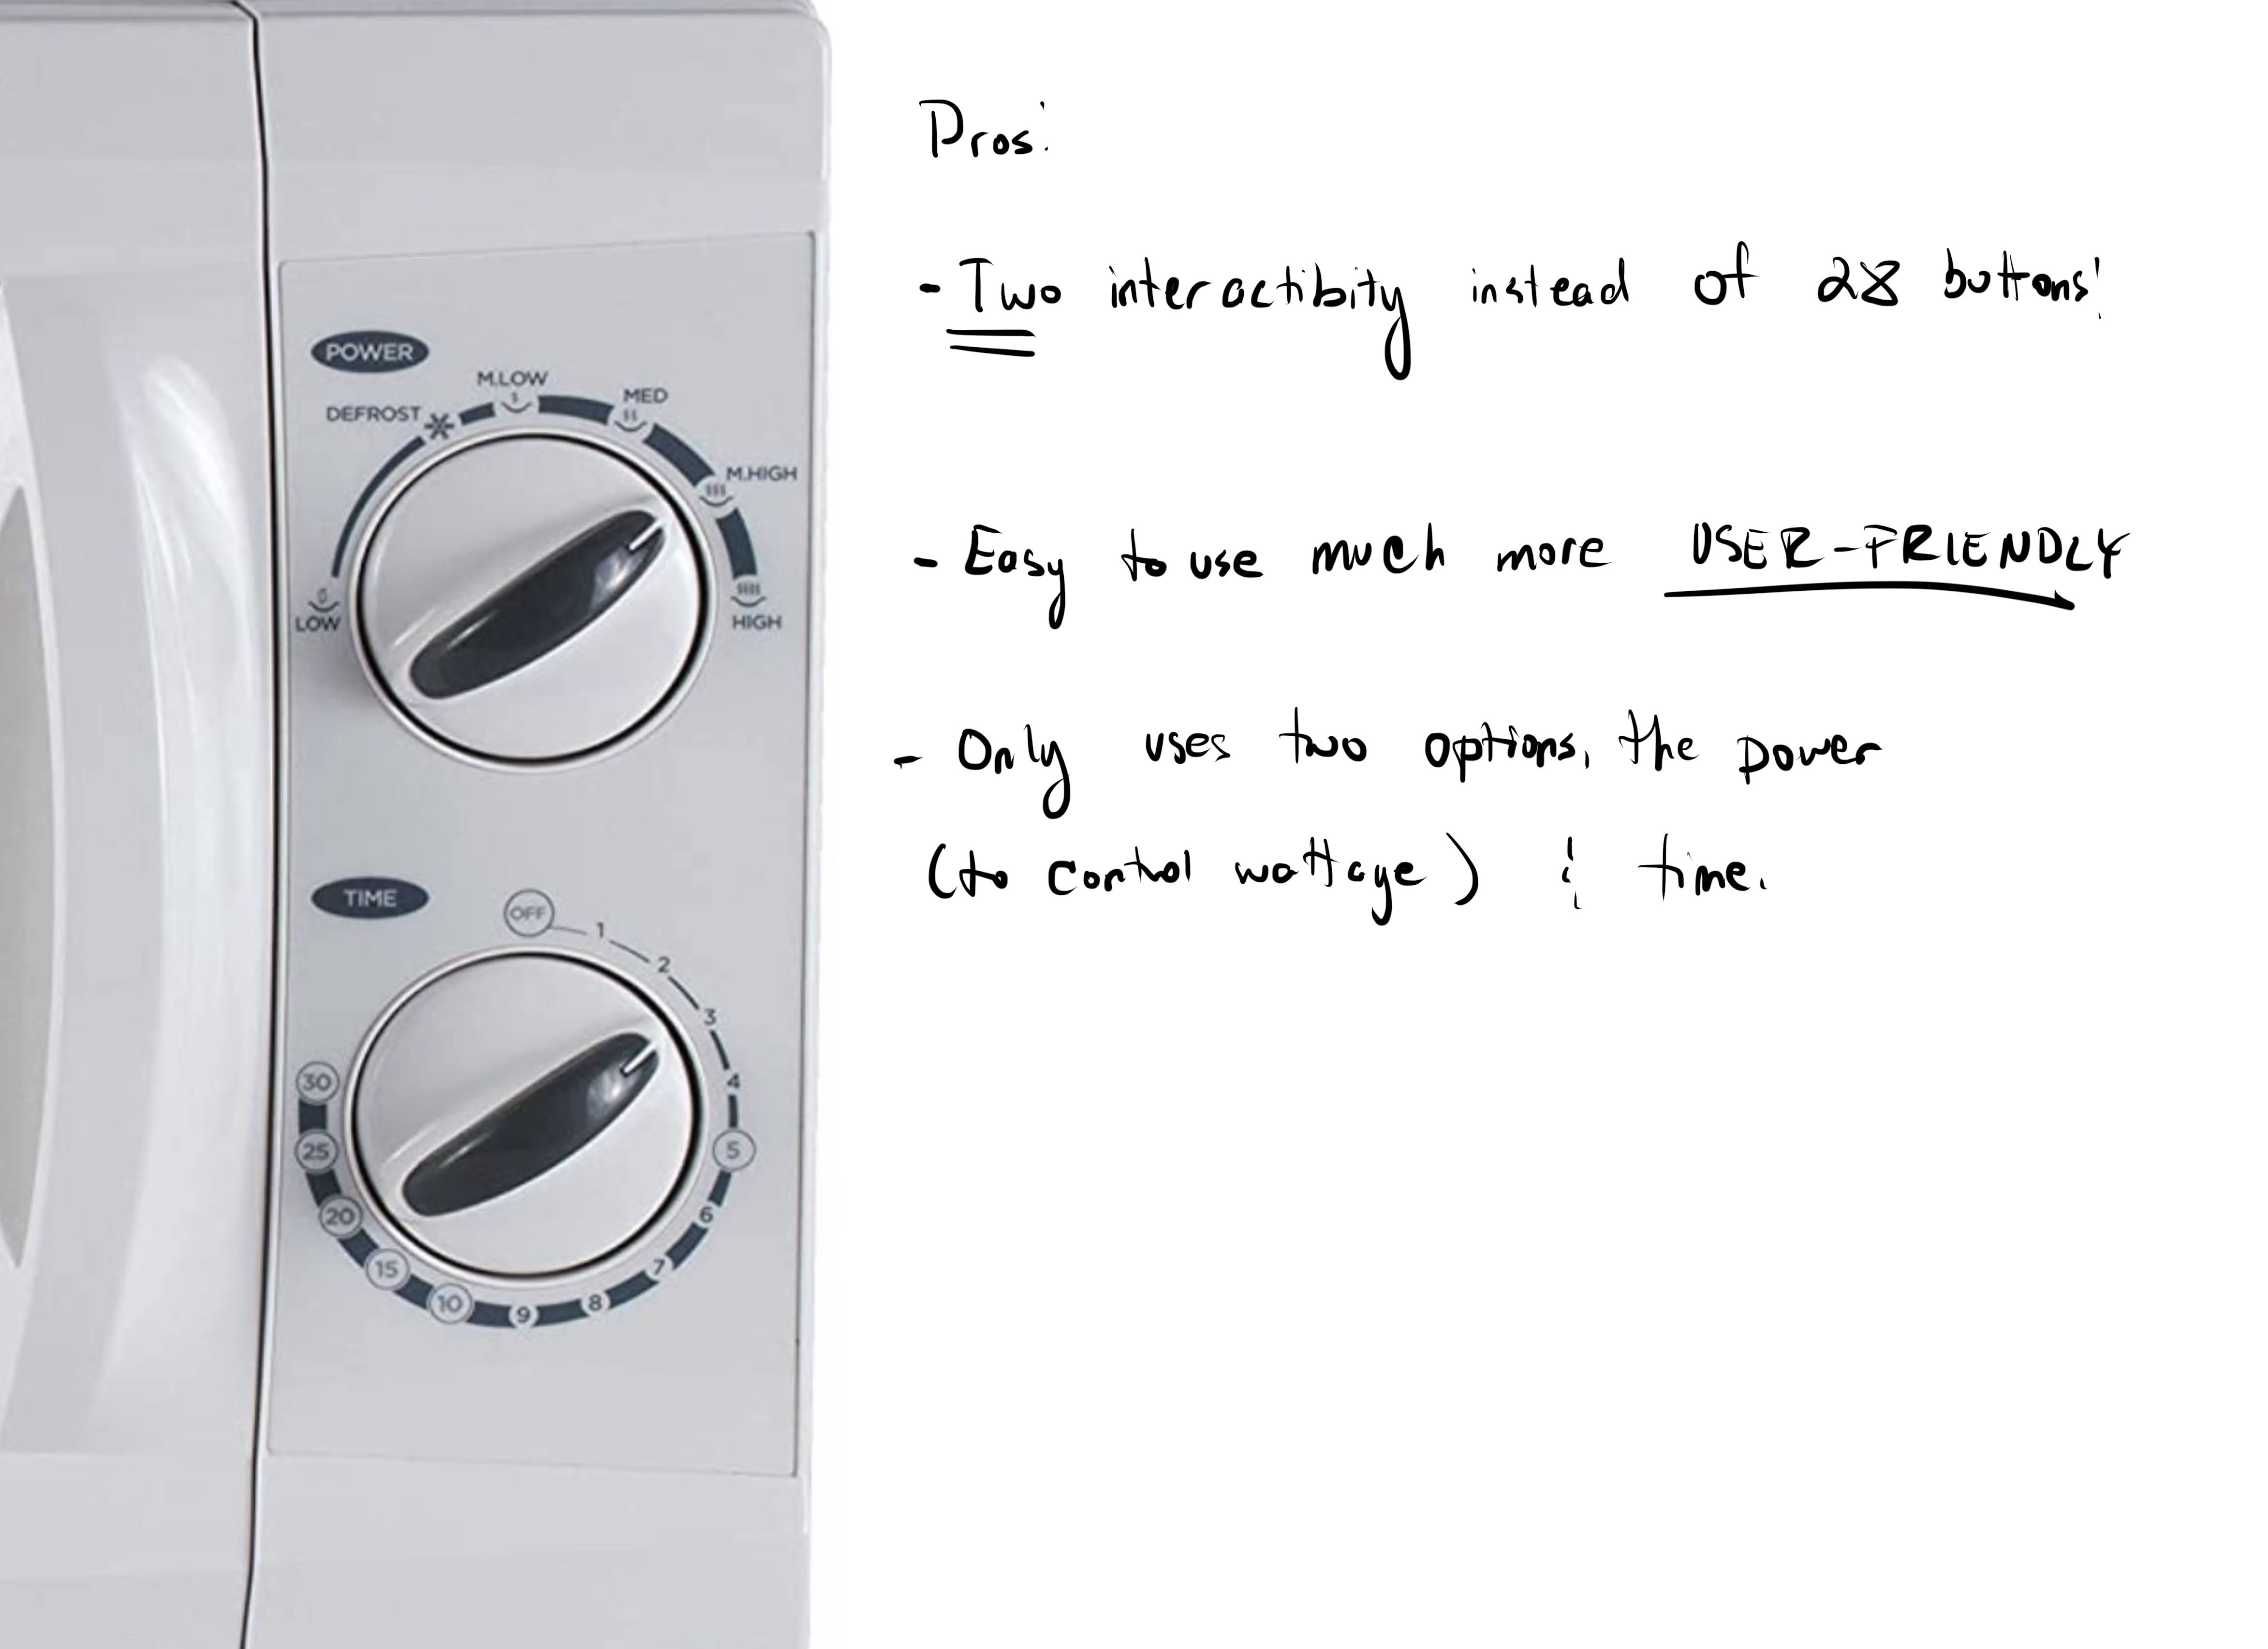 POWER
M.LOW
MED
DEFROST
M.HIGH
LOW
HIGH
TIME
OFF
1
2
3
4
5
6
7
8
9
10
15
20
25
30
Pros:
- Two interactibity instead of 28 buttons!
- Easy to use much more USER-FRIENDLY
- Only uses two options, the power
(to control wattage) & time.